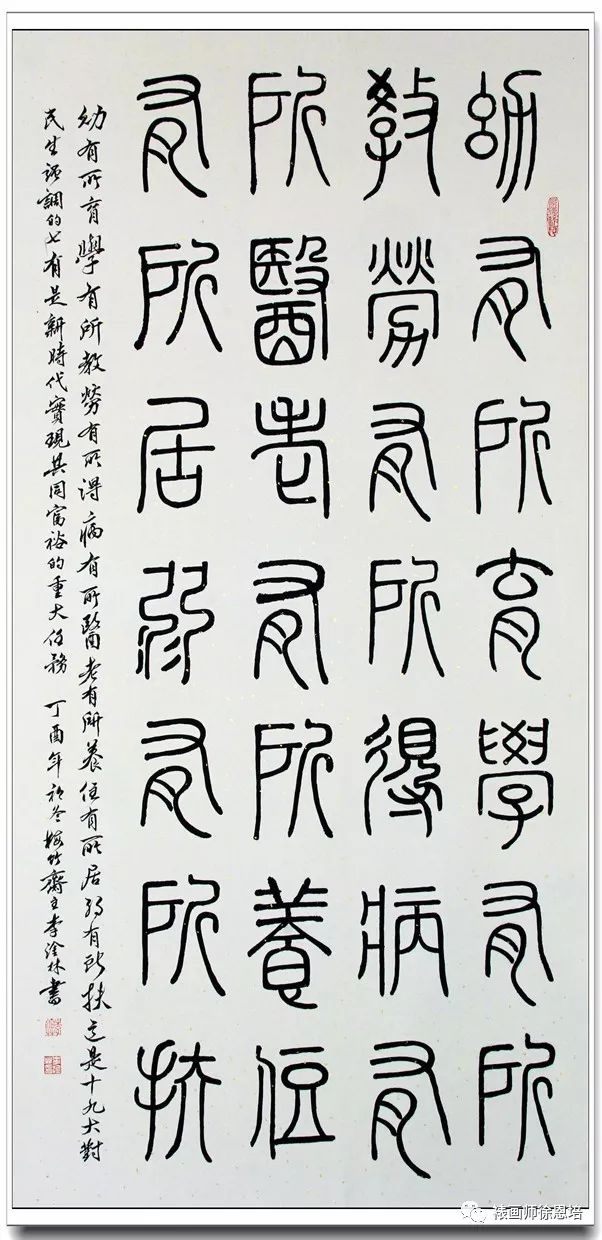 幼有所育學有所
教勞有所得病有
所醫老有所養住
有所居弱有所扶
幼有所育學有所教勞有所得病有所醫老有所養住有所居弱有所扶這是十九大對
民生強調的七有是新時代實現共同富裕的重大任務 丁酉年初冬梅竹齋主李淦林書
裱画师徐恩培